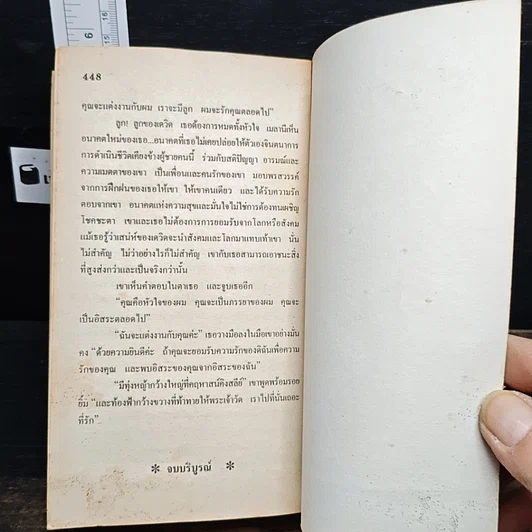 448
คุณจะแต่งงานกับผม เราจะมีลูก ผมจะรักคุณตลอดไป"
ลูก! ลูกของเดวิด เธอต้องการหมดทั้งหัวใจ เมลานีเห็น
อนาคตใหม่ของเธอ...อนาคตที่เธอไม่เคยปล่อยให้ตัวเองจินตนาการ
การดำเนินชีวิตเคียงข้างผู้ชายคนนี้ ร่วมกับสติปัญญา อารมณ์และ
ความเมตตาของเขา เป็นเพื่อนและคนรักของเขา มอบพรสวรรค์
จากการฝึกฝนของเธอให้เขา ให้เขาคนเดียว และได้รับความรัก
ตอบจากเขา อนาคตแห่งความสุขและมั่นใจไม่ใช่การต้องทนเผชิญ
โชคชะตา เขาและเธอไม่ต้องการการยอมรับจากโลกหรือสังคม
แม้เธอรู้ว่าเสน่ห์ของเดวิดจะนำสังคมและโลกมาแทบเท้าเขา นั่น
ไม่สำคัญ ไม่ว่าอย่างไรก็ไม่สำคัญ เขากับเธอสามารถเอาชนะสิ่ง
ที่สูงส่งกว่าและเป็นจริงกว่านั้น
เขาเห็นคำตอบในตาเธอ และจูบเธออีก
"คุณคือหัวใจของผม คุณจะเป็นภรรยาของผม คุณจะ
เป็นอิสระตลอดไป"
"ฉันจะแต่งงานกับคุณค่ะ" เธอวางมือลงในมือเขาอย่างมั่น
คง "ด้วยความยินดีค่ะ ถ้าคุณจะยอมรับความรักของดิฉันเพื่อความ
รักของคุณ และพบอิสระของคุณจากอิสระของฉัน"
"มีทุ่งหญ้ากว้างใหญ่ที่คฤหาสน์คิงสลีย์" เขาพูดพร้อมรอย
ยิ้ม "และท้องฟ้ากว้างขวางที่ท้าทายให้พระเจ้าวัด เราไปที่นั่นเถอะ
ที่รัก"
* จบบริบูรณ์ *
6
15
16